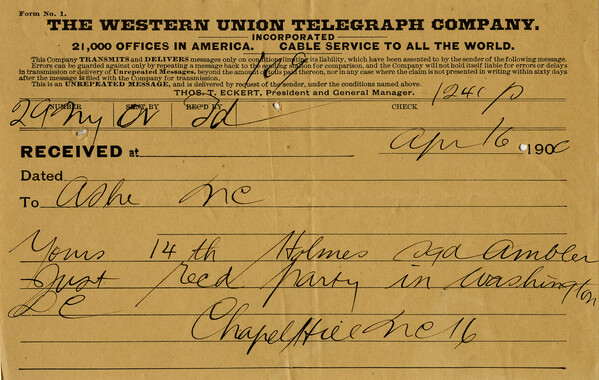 Form No. 1.
THE WESTERN UNION TELEGRAPH COMPANY.
INCORPORATED
21,000 OFFICES IN AMERICA. CABLE SERVICE TO ALL THE WORLD.
This Company TRANSMITS and DELIVERS messages only on conditions limiting its liability, which have been assented to by the sender of the following message.
Errors can be guarded against only by repeating a message back to the sending station for comparison, and the Company will not hold itself liable for errors or delays
in transmission or delivery of Unrepeated Messages, beyond the amount of tolls paid thereon, nor in any case where the claim is not presented in writing within sixty days
after the message is filed with the Company for transmission.
This is an UNREPEATED MESSAGE, and is delivered by request of the sender, under the conditions named above.
THOS. T. ECKERT, President and General Manager.
1241 p
NUMBER SENT BY REC'D BY CHECK
29 ny
RECEIVED at Apr 16 190
Dated
To Ashe NC
Yours 14th Holmes sgd Ambler
Just Recd party in Washington
DC
Chapel Hill NC 16